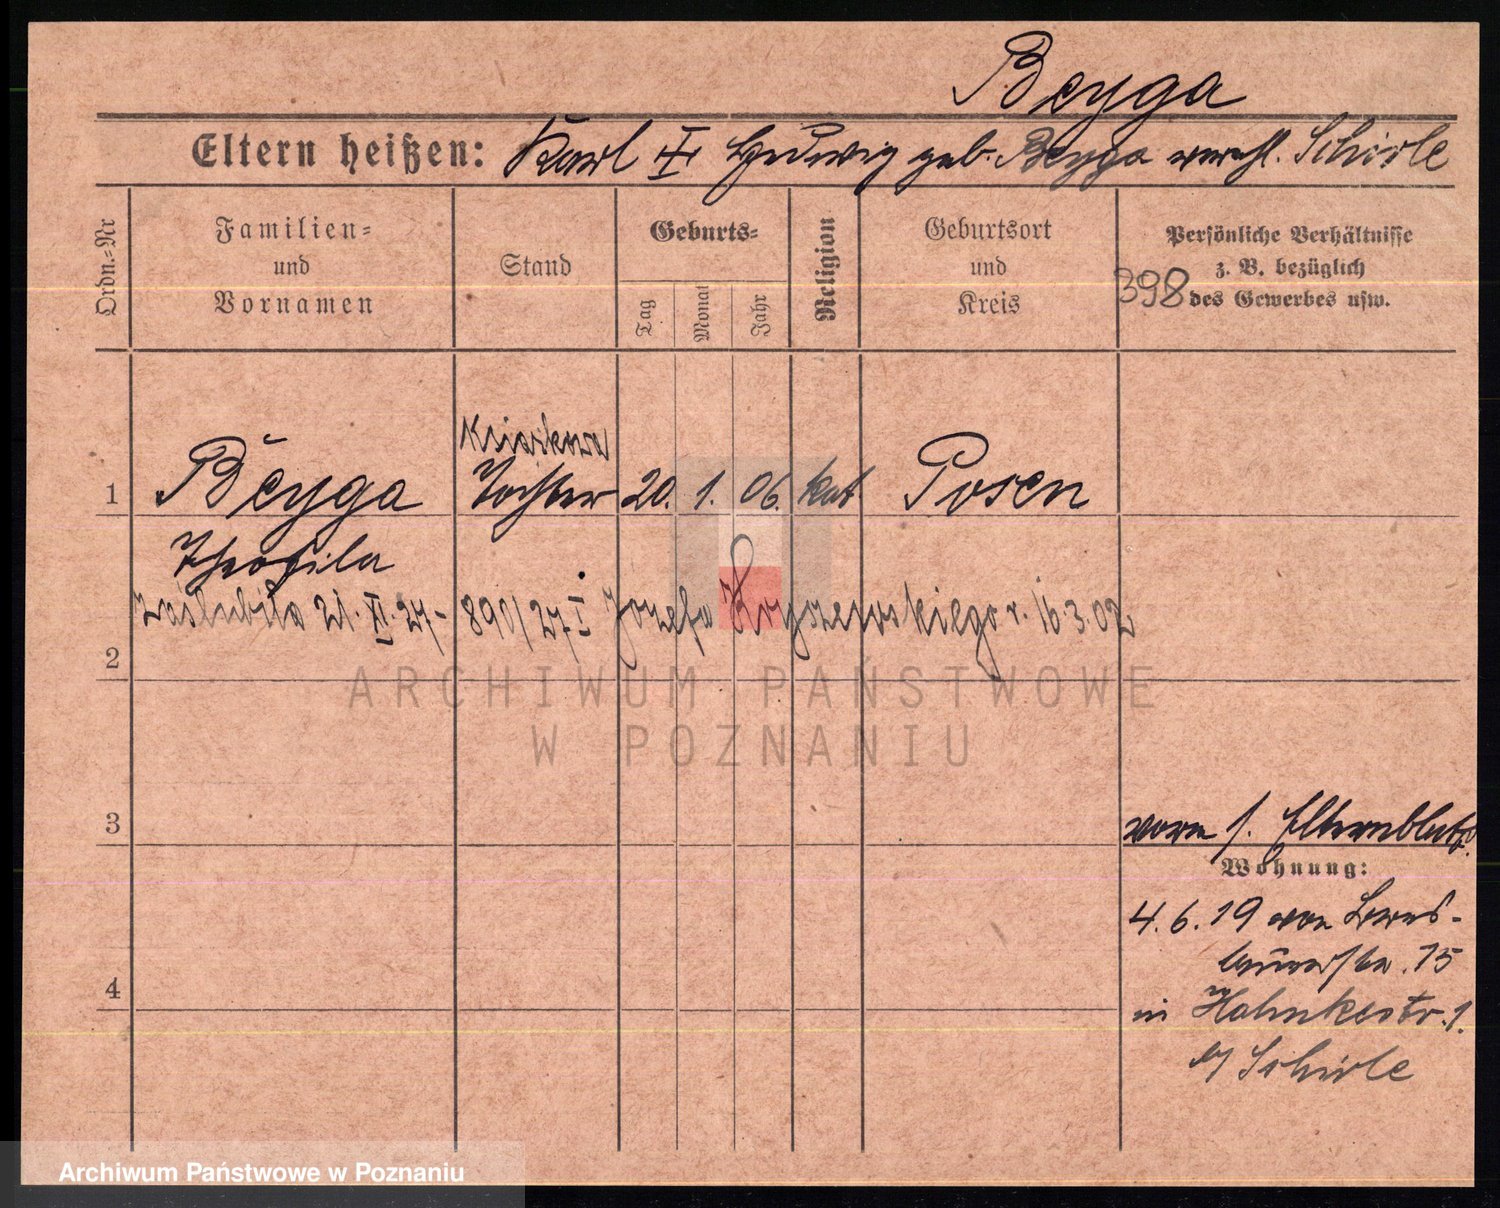 Beyga
Eltern heißen: Karl u. Hedwig geb. Beyga verehl. Schirle
Ordn.=Nr
Familien=
und
Vornamen
Stand
Geburts=
Tag
Monat
Jahr
Religion
Geburtsort
und
Kreis
Persönliche Verhältnisse
z. B. bezüglich
des Gewerbes usw.
398
1 Beyga Tochter 20. 1. 06. kat. Posen
Theofila
zaślubiła 21. XI. 27 - 890/27 I Józefa r. 16.3.02
2
3
vorn s. Elternblatt
Wohnung:
4.6.19 von
15
4
in Hahnkestr. 1.
b/ Schirle
ARCHIWUM PAŃSTWOWE
W POZNANIU
Archiwum Państwowe w Poznaniu